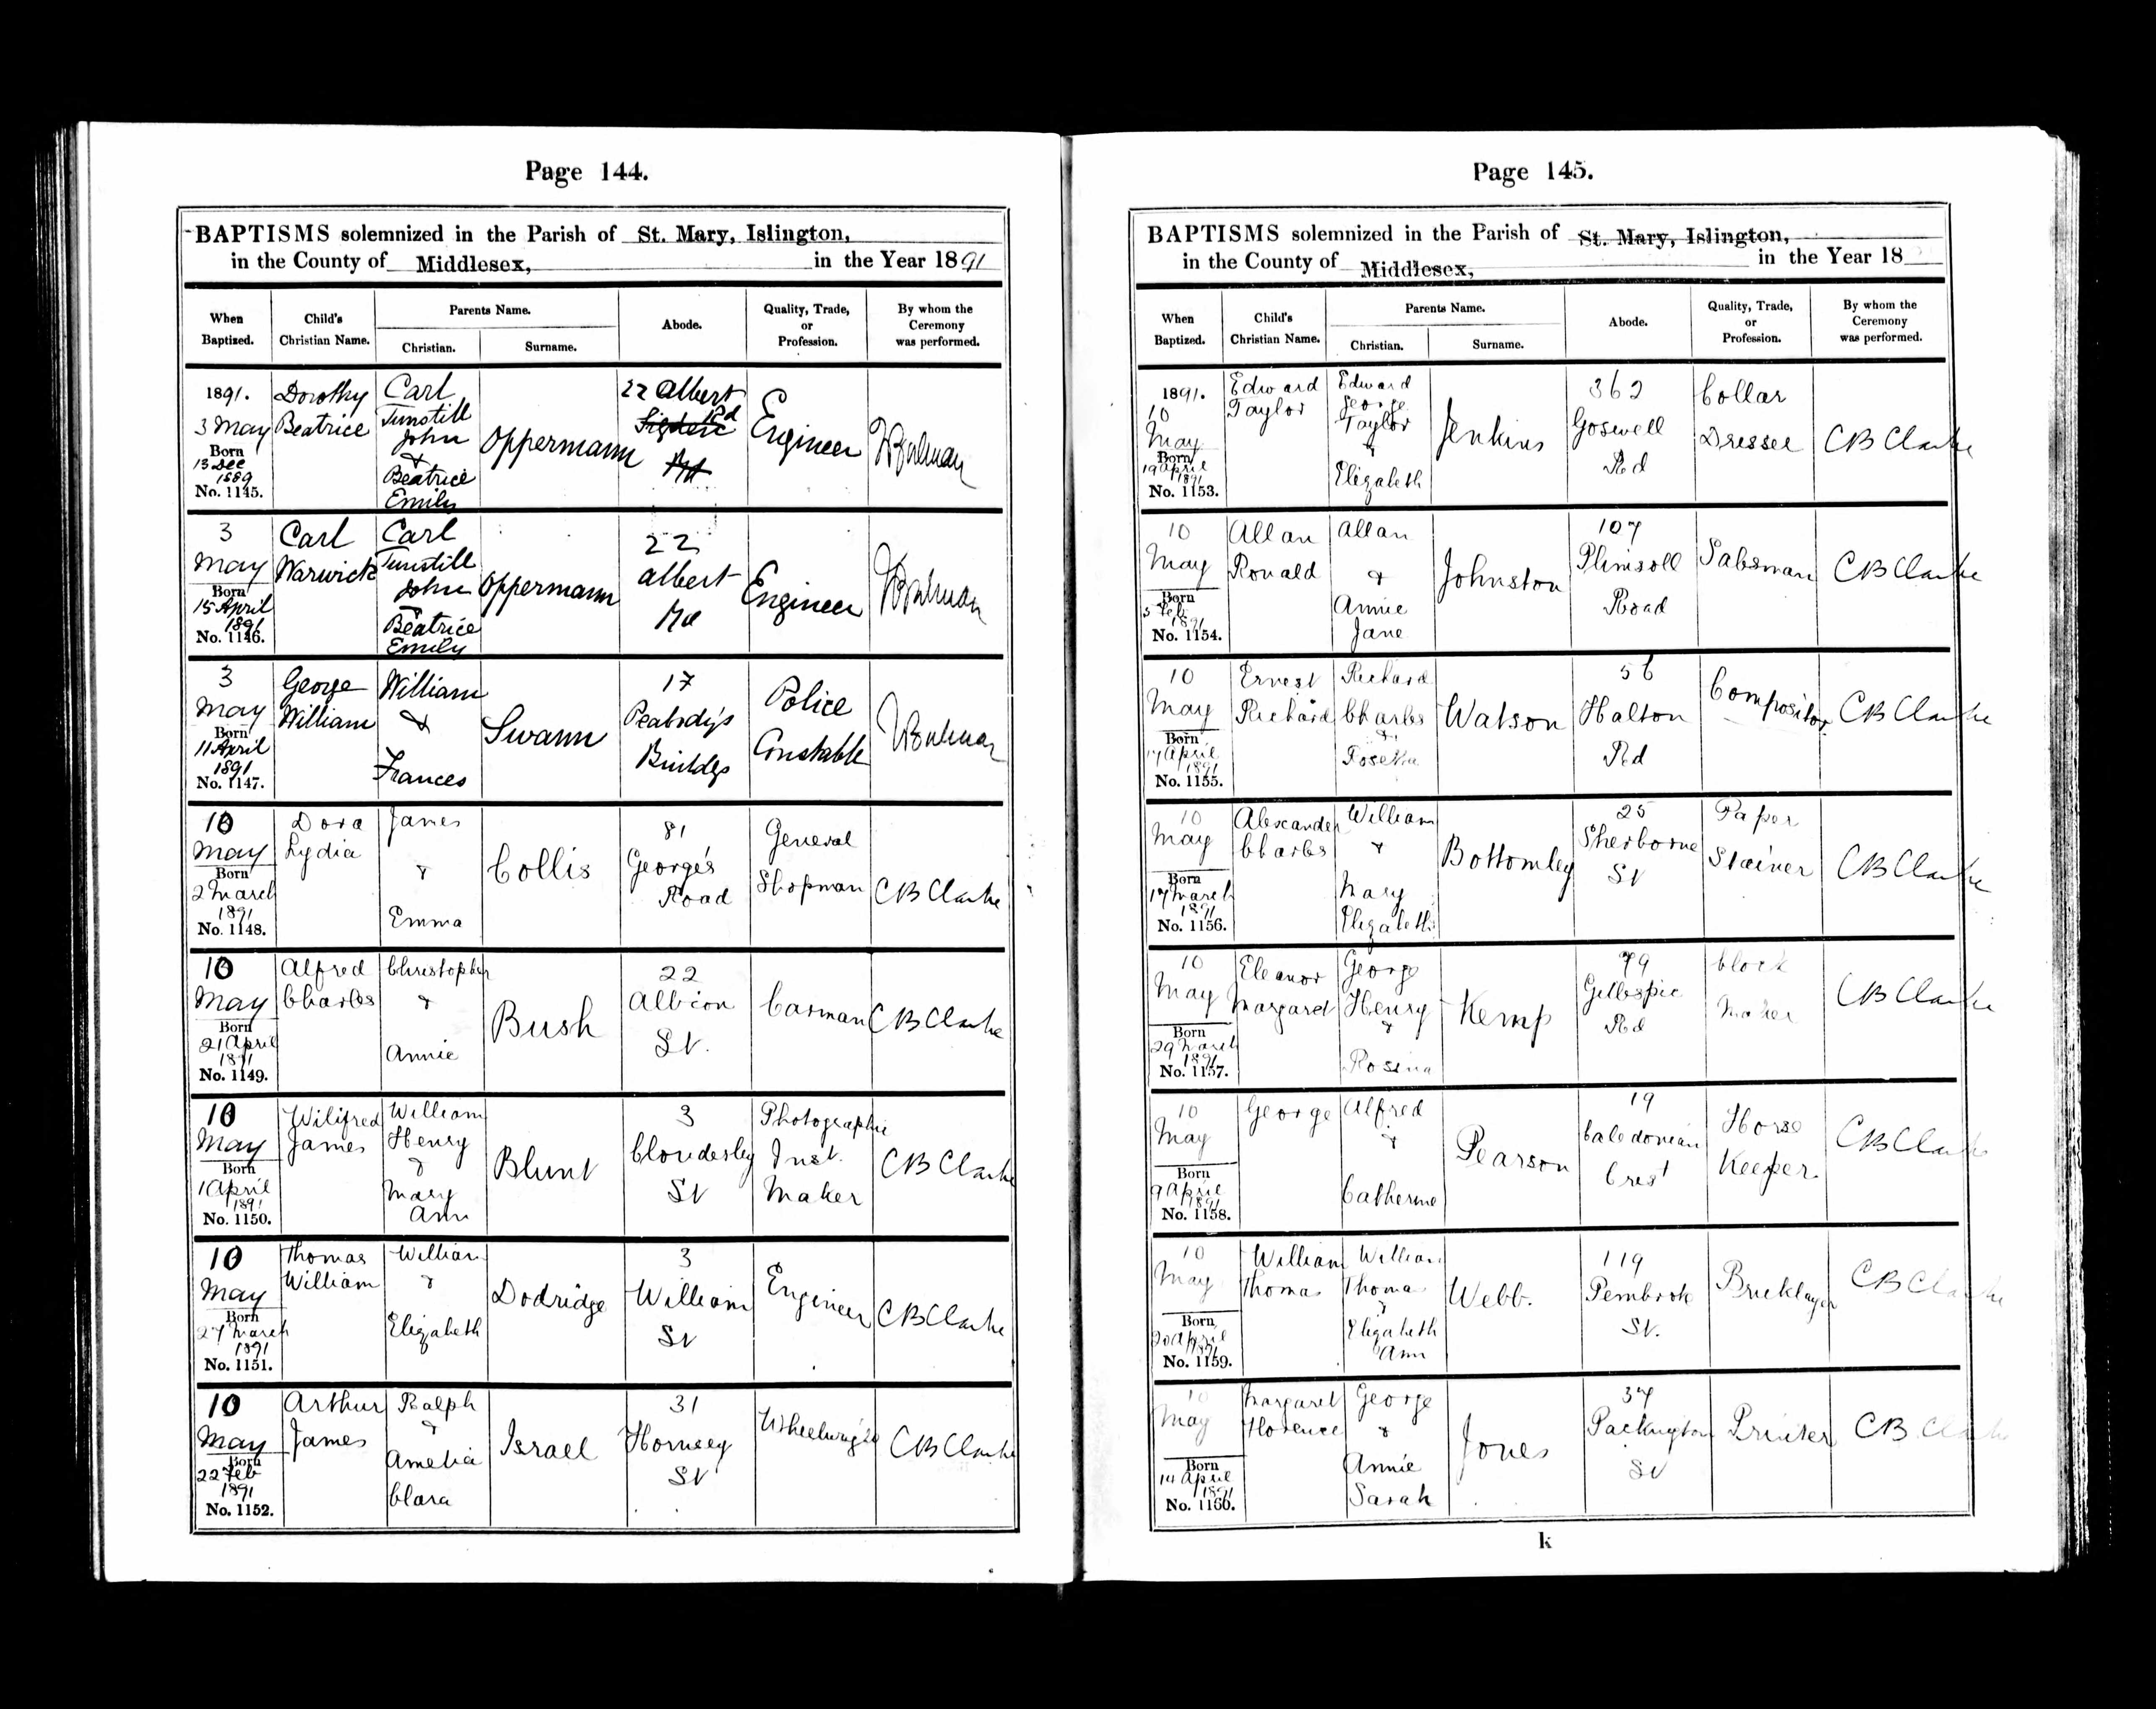 Page 144.
BAPTISMS solemnized in the Parish of St. Mary, Islington,
in the County of Middlesex, in the Year 1891
When Baptized. Child's Christian Name. Parents Name. Christian. Surname. Abode. Quality, Trade, or Profession. By whom the Ceremony was performed.
1891. 3 May Born 13 Dec 1889 No. 1145. Dorothy Beatrice Carl Tunstill John & Beatrice Emily Oppermann 22 Albert Rd Engineer
3 May Born 15 April 1891 No. 1146. Carl Warwick Carl Tunstill John & Beatrice Emily Oppermann 22 Albert Rd Engineer
3 May Born 11 April 1891 No. 1147. George William William & Frances Swann 17 Peabody's Buildgs Police Constable
10 May Born 2 March 1891 No. 1148. Dora Lydia James & Emma Collis 81 George's Road General Shopman CB Clarke
10 May Born 21 April 1891 No. 1149. Alfred Charles Christopher & Annie Bush 22 Albion St. Carman CB Clarke
10 May Born 1 April 1891 No. 1150. Wilifred James William Henry & Mary Ann Blunt 3 Cloudesley St Photographic Inst. Maker CB Clarke
10 May Born 27 March 1891 No. 1151. Thomas William William & Elizabeth Dodridge 3 William St Engineer CB Clarke
10 May Born 22 Feb 1891 No. 1152. Arthur James Ralph & Amelia Clara Israel 31 Hornsey St Wheelwright CB Clarke
Page 145.
BAPTISMS solemnized in the Parish of St. Mary, Islington,
in the County of Middlesex, in the Year 18
When Baptized. Child's Christian Name. Parents Name. Christian. Surname. Abode. Quality, Trade, or Profession. By whom the Ceremony was performed.
1891. 10 May Born 19 April 1891 No. 1153. Edward Taylor Edward George Taylor & Elizabeth Jenkins 362 Goswell Rd Collar Dresser CB Clarke
10 May Born 5 Feb 1891 No. 1154. Allan Ronald Allan & Annie Jane Johnston 107 Plimsoll Road Salesman CB Clarke
10 May Born 17 April 1891 No. 1155. Ernest Richard Richard Charles & Watson 56 Halton Rd Compositor CB Clarke
10 May Born 17 March 1891 No. 1156. Alexander Charles William & Mary Elizabeth Bottomley 25 Sherborne St Paper Stainer CB Clarke
10 May Born 29 March 1891 No. 1157. Eleanor Margaret George Henry & Rosina Kemp 79 Gillespie Rd Clock Maker CB Clarke
10 May Born 9 April 1891 No. 1158. George Alfred & Catherine Pearson 19 Caledonian Crest Horse Keeper CB Clarke
10 May Born 20 April 1891 No. 1159. William Thomas William Thomas & Elizabeth Ann Webb. 119 Pembrok St. Bricklayer CB Clarke
10 May Born 14 April 1891 No. 1160. Margaret Florence George & Annie Sarah Jones 37 Packington St Printer CB Clarke
k